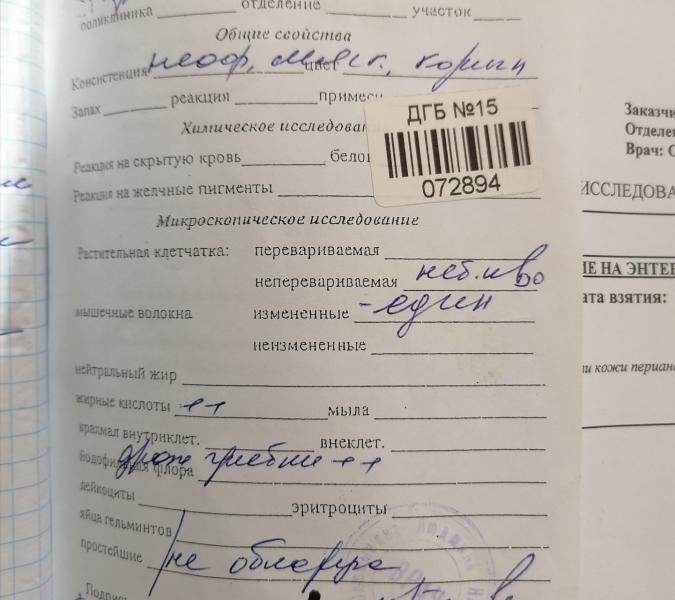 поликлиника отделение участок
Общие свойства
Консистенция неоф, мягк., цвет коричн
Запах реакция примеси
Химическое исследован
Реакция на скрытую кровь бело
Реакция на желчные пигменты
ДГБ №15
072894
Микроскопическое исследование
Растительная клетчатка: перевариваемая
непервариваемая неб. к-во
мышечные волокна измененные - един
неизмененные
нейтральный жир
жирные кислоты ++ мыла
крахмал внутриклет. внеклет.
йодофильная флора дрож грибки ++
лейкоциты эритроциты
яйца гельминтов
простейшие не обнаруж
Подпись
Заказчи
Отделе
Врач: С
ИССЛЕДОВА
ИЕ НА ЭНТЕР
ата взятия:
и кожи периан